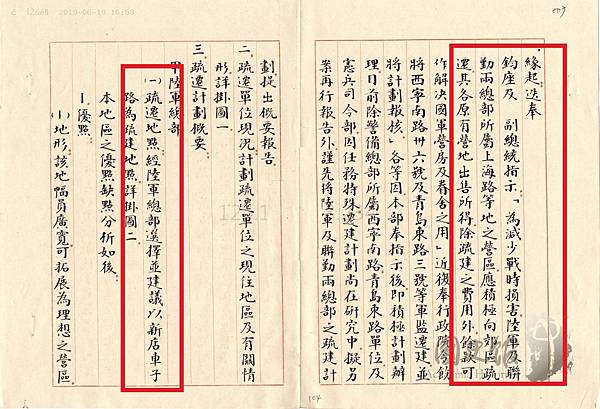 003
緣起迭奉
鈞座及　副總統指示「為減少戰時損害陸軍及聯
勤兩總部所屬上海路等地之營區應積極向郊區疏
遷其各原有營地出售所得除疏建之費用外餘款可
作解決國軍營房及眷舍之用」近復奉行政院令飭
將西寧南路卅六號及青島東路三號等軍監遷建並
將計劃報核」各等因本部奉指示後即積極計劃辦
理目前除警備總部所屬西寧南路青島東路單位及
憲兵司令部因任務特殊遷建計劃尚在研究中擬另
案再行報告外謹先將陸軍及聯勤兩總部之疏建計
104
劃提出概要報告
二、疏遷單位現況計劃疏遷單位之現住地區及有關情
形詳掛圖一
三、疏遷計劃概要
甲陸軍總部
㈠疏遷地點經陸軍總部選擇並建議以新店車子
路為疏建地點詳掛圖二
本地區之優點缺點分析如後
1.優點
⑴地形該地幅員廣寬可拓展為理想之營區